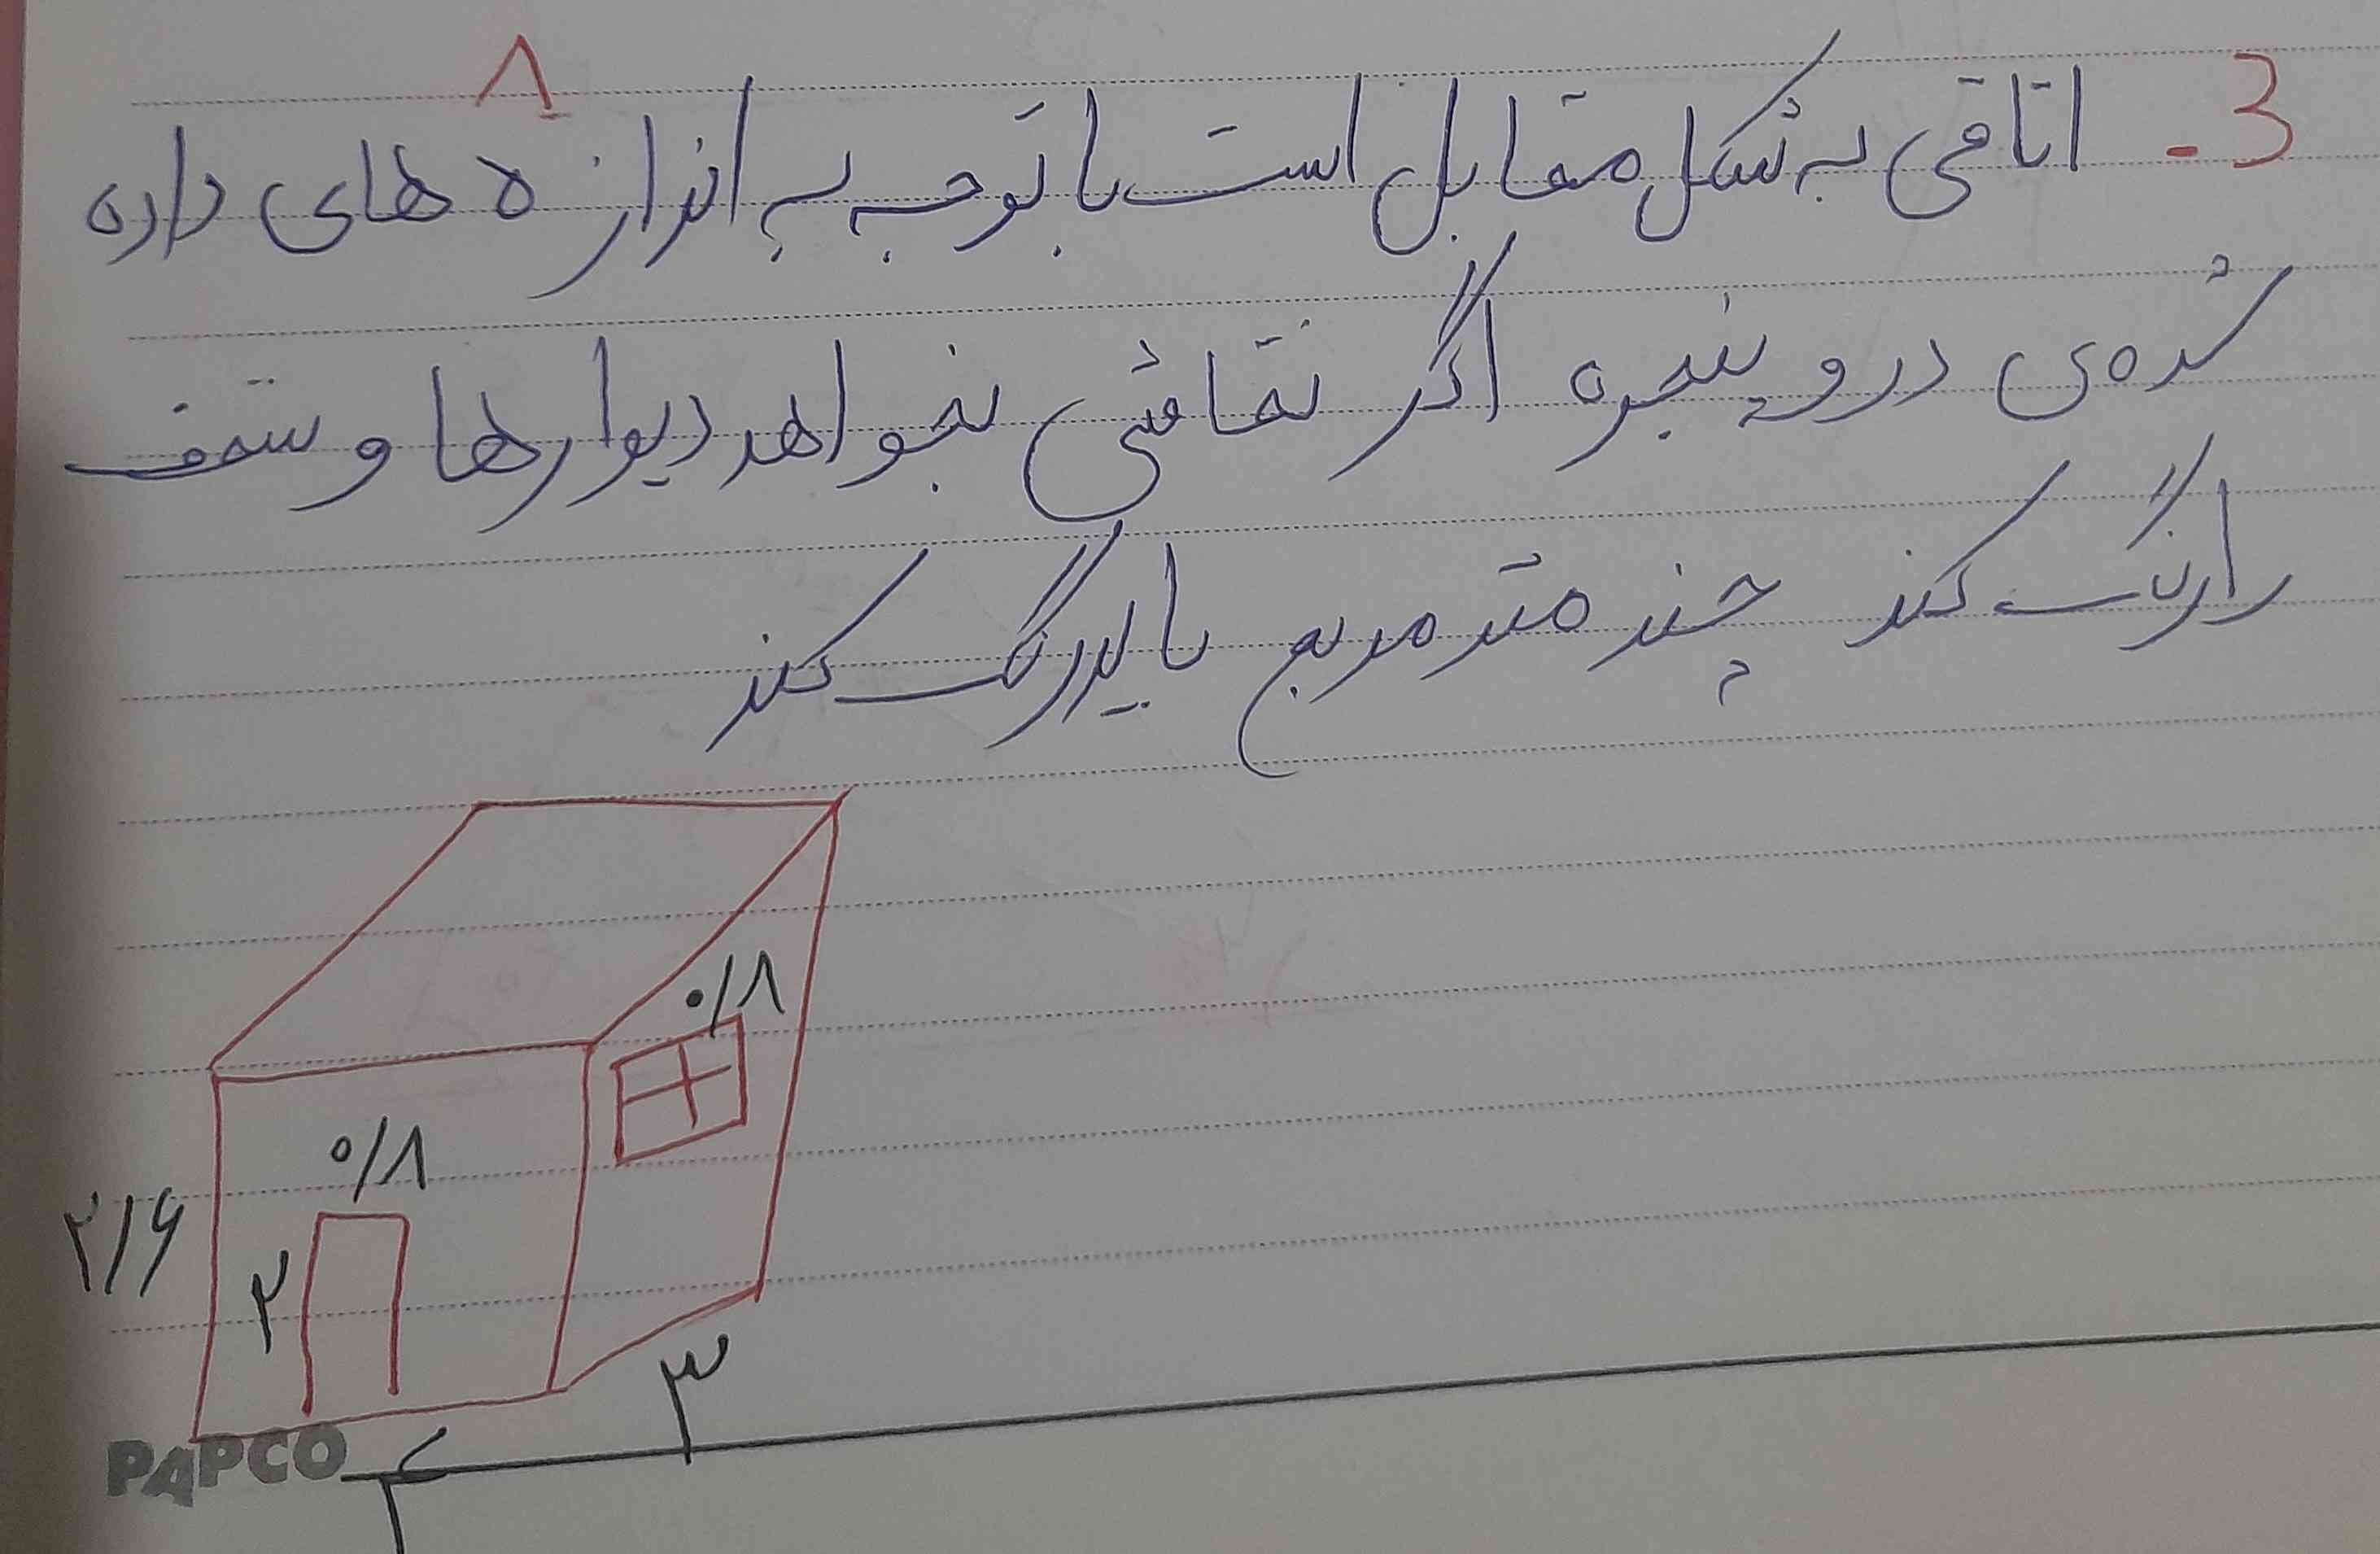 ۸
3- اتاقی به شکل مقابل است با توجه به اندازه های داده
شده‌ی در و پنجره اگر نقاشی بخواهد دیوارها و سقف
را رنگ کند چند متر مربع باید رنگ کند
۰/۸
۰/۸
۲/۶
۲
۳
۴
PAPCO